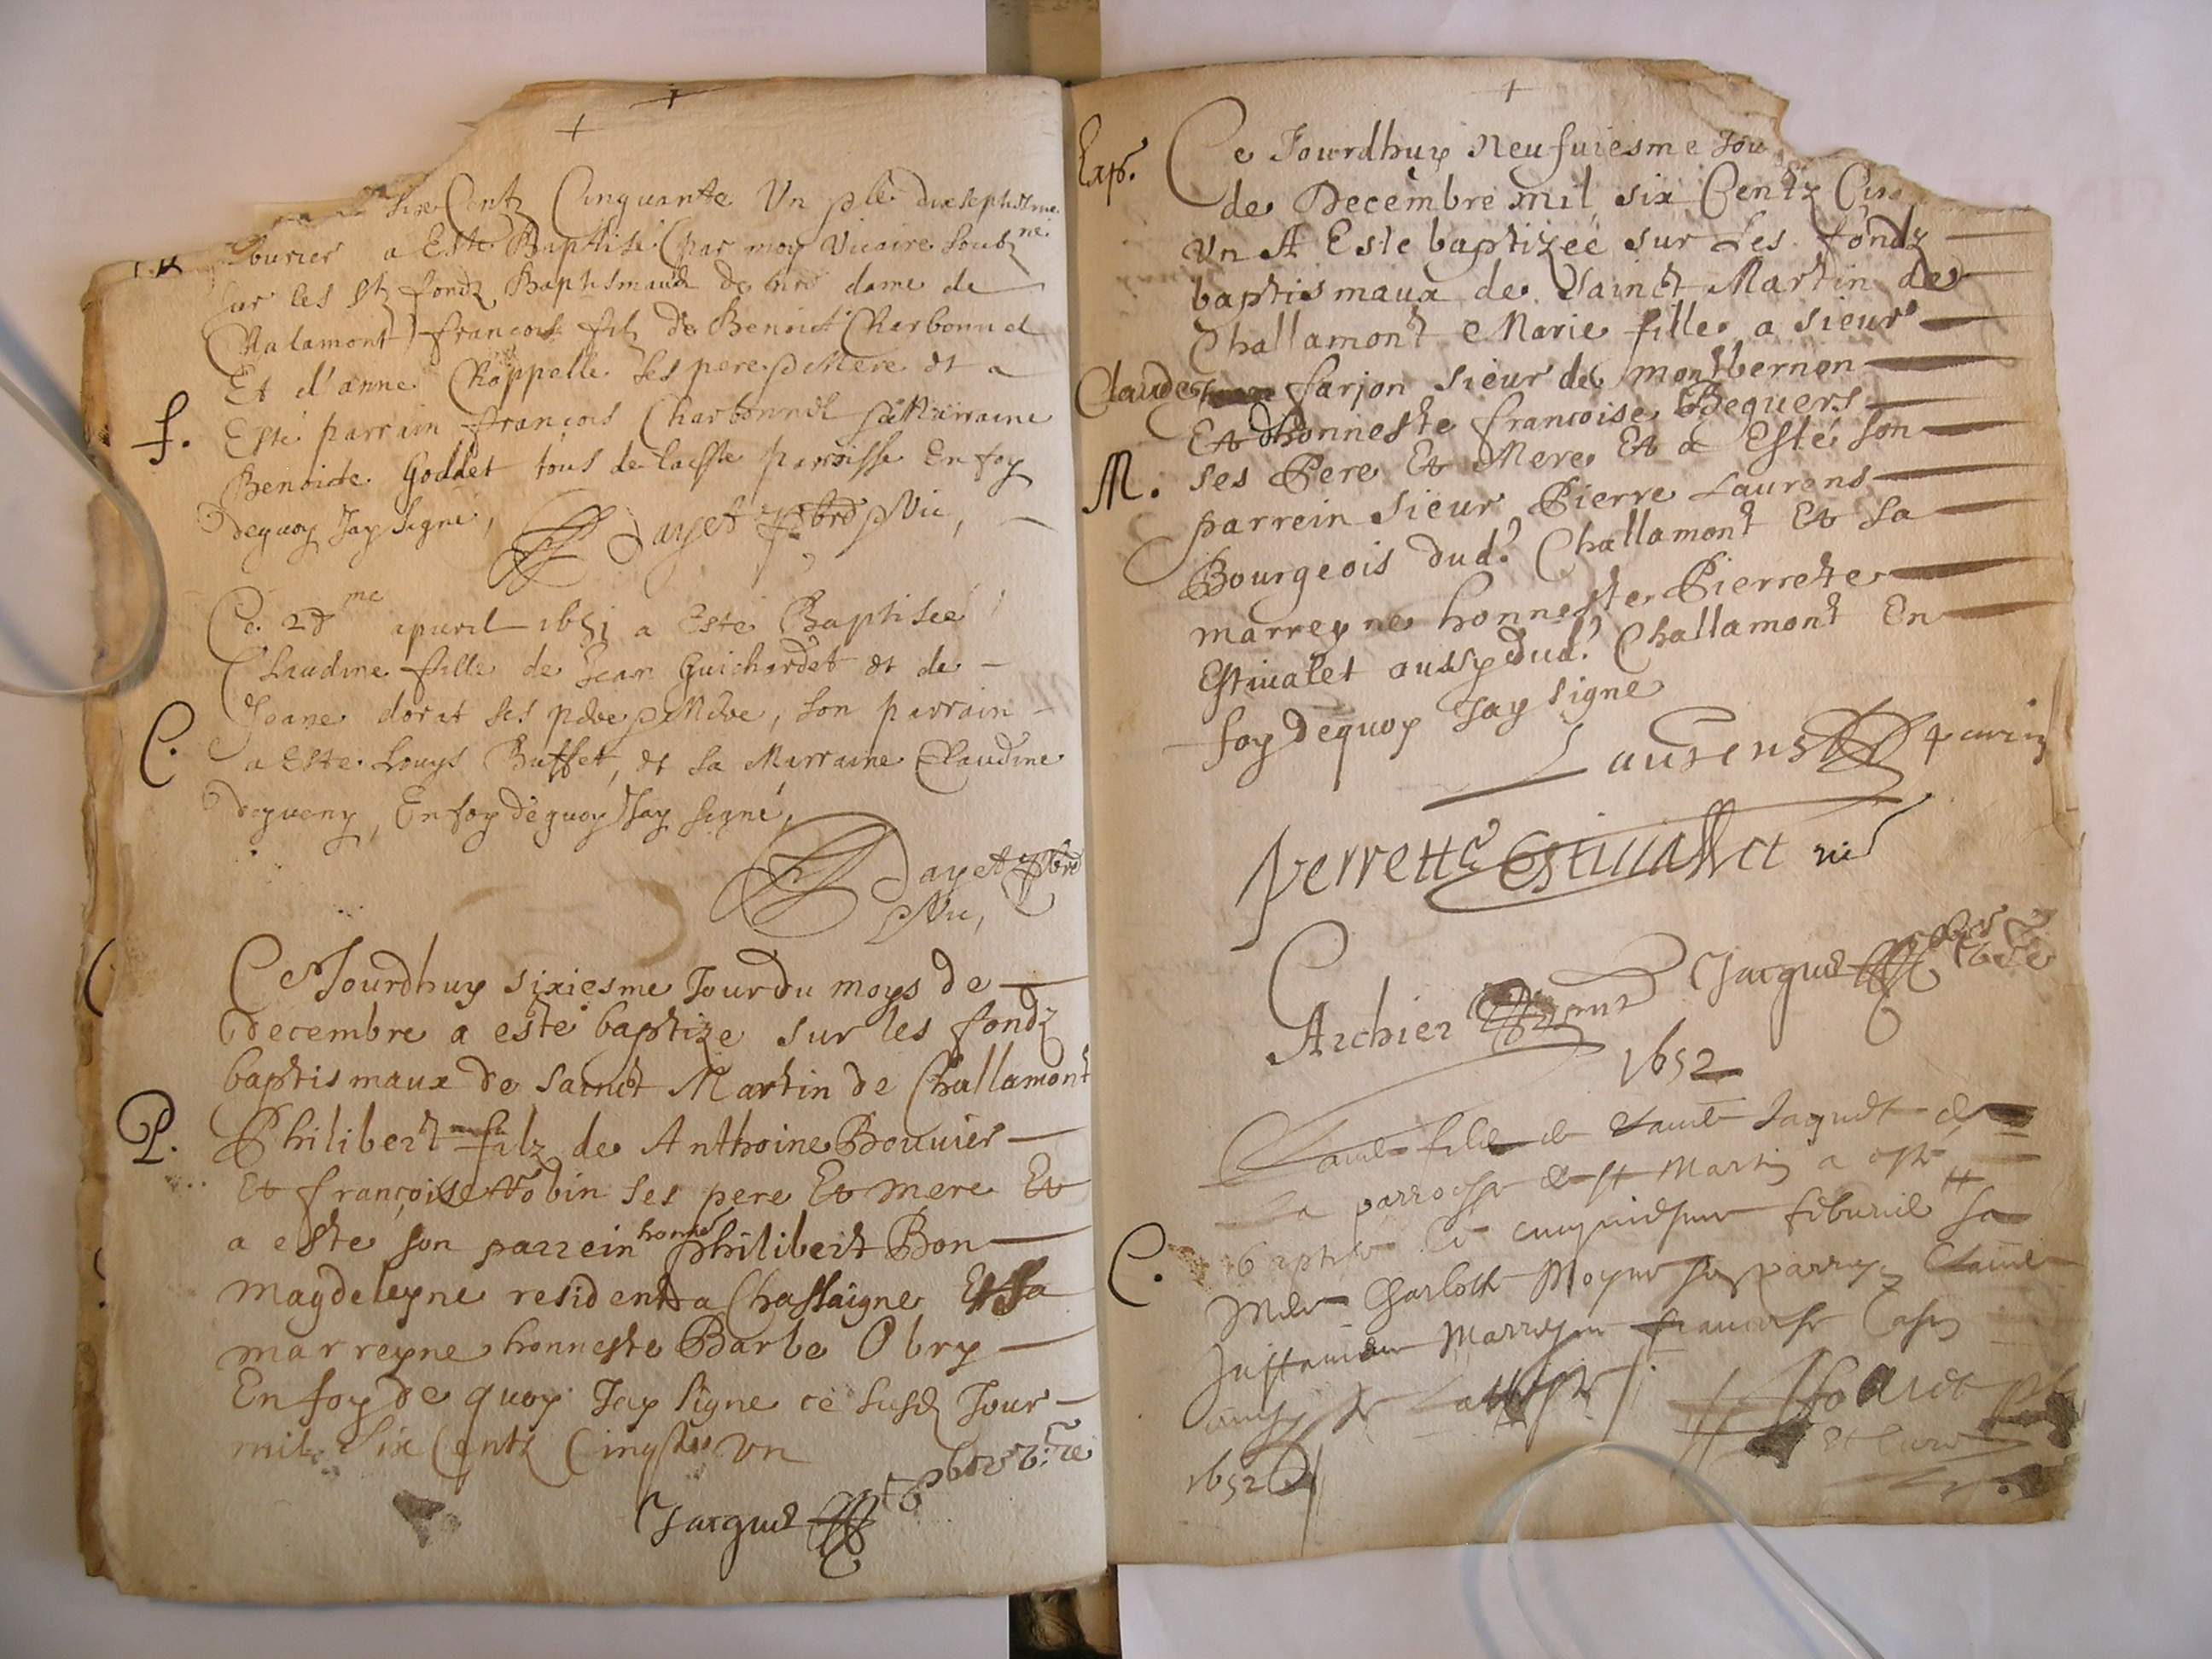 six Centz Cinquante Un
a Esté Baptisé (par moy Vicaire soubz.ne
sur les Stz fondz Baptismaux de nre dame de
Chalamont) françois filz de Benoict Charbonnet
Et d'anne Chappelle ses pere & Mere et a
f.
Esté parrain françois Charbonnet sa Marraine
Benoicte Goddet tous de laditte parroisse En foy
dequoy Jay signé, Dayet pbre & Vic,
Ce 28me apuril 1651 a Esté Baptisée
Claudine fille de Jean Guichardet et de
Jeane dorat ses pere & Mere, son parrain
C.
a Esté Louys Buffet, et sa Marraine Claudine
En foy dequoy Jay signé,
Dayet pbre
& Vic,
Ce Jourdhuy sixiesme Jour du moys de
decembre a esté baptize sur les fondz
baptismaux de sainct Martin de Challamont
P.
Philibert filz de Anthoine Bouuier
Et françoise Robin ses pere Et mere Et
a esté son parrein honne philibert Bon
magdeleyne resident a Chassaigne Et sa
marreyne honneste Barbe Obry
En foy de quoy Jay signe ce susd Jour
mil Six Centz Cinqte Vn
Jacquet pbre
Exp.
Ce Jourdhuy Neufuiesme Jou
de Decembre mil six Centz Cin
Vn A Esté baptizeé sur Les fondz
baptismaux de Sainct Martin de
Challamont Marie fille a sieur
Claude farjon sieur de montbernon
Et dhonneste francoise Beguers
M.
ses Pere Et Mere Et a Esté son
parrein sieur Pierre Laurens
Bourgeois dud.t Challamont Et sa
marreyne honneste Pierrette
Estiualet aussy dud.t Challamont En
foy dequoy Jay signe
Laurens parin
perrette Estiuallet
Archier Jacquet pbre
1652
fille de Jaquet de
la parroisse de st Martin a esté
baptisée le cinquiesme feburie sa
C.
Mere Charlotte Moyne son parrey
Marreyne francoise
et Curé
1652